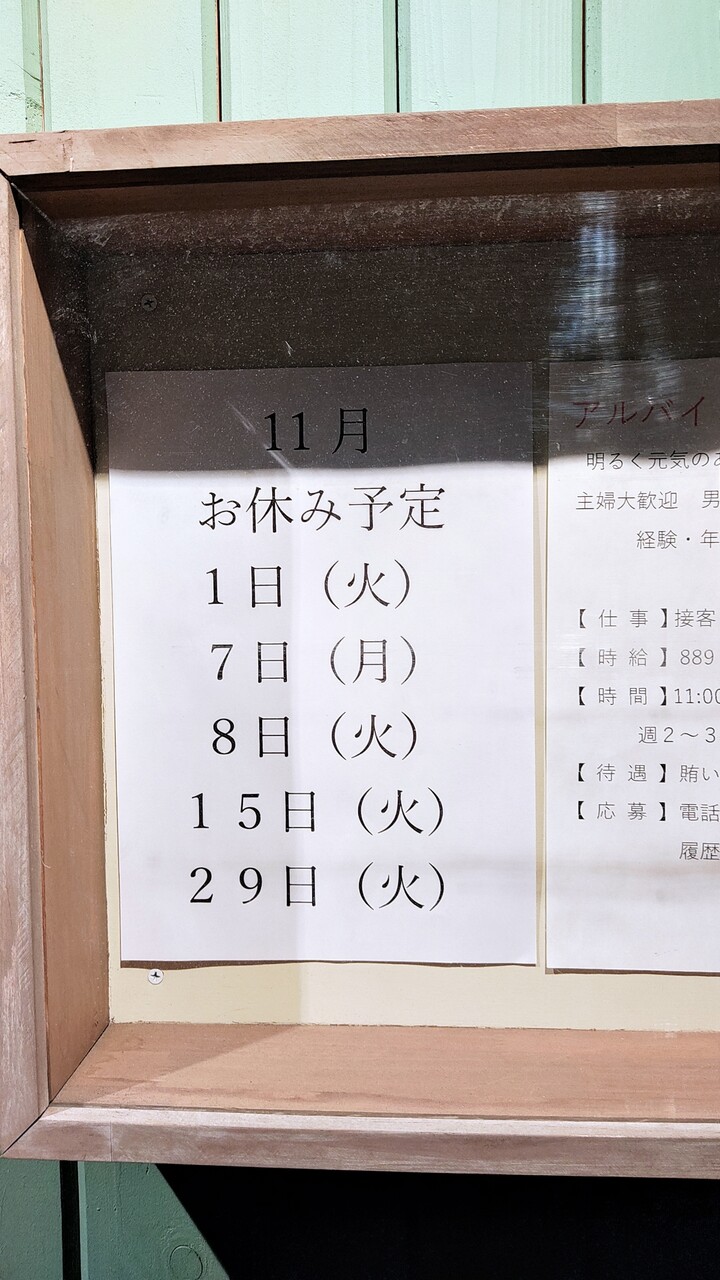 11月
お休み予定
1日（火）
7日（月）
8日（火）
15日（火）
29日（火）
アルバイ
明るく元気の
主婦大歓迎　男
経験・年
【 仕 事 】接客
【 時 給 】889
【 時 間 】11:00
週2～3
【 待 遇 】賄い
【 応 募 】電話
履歴